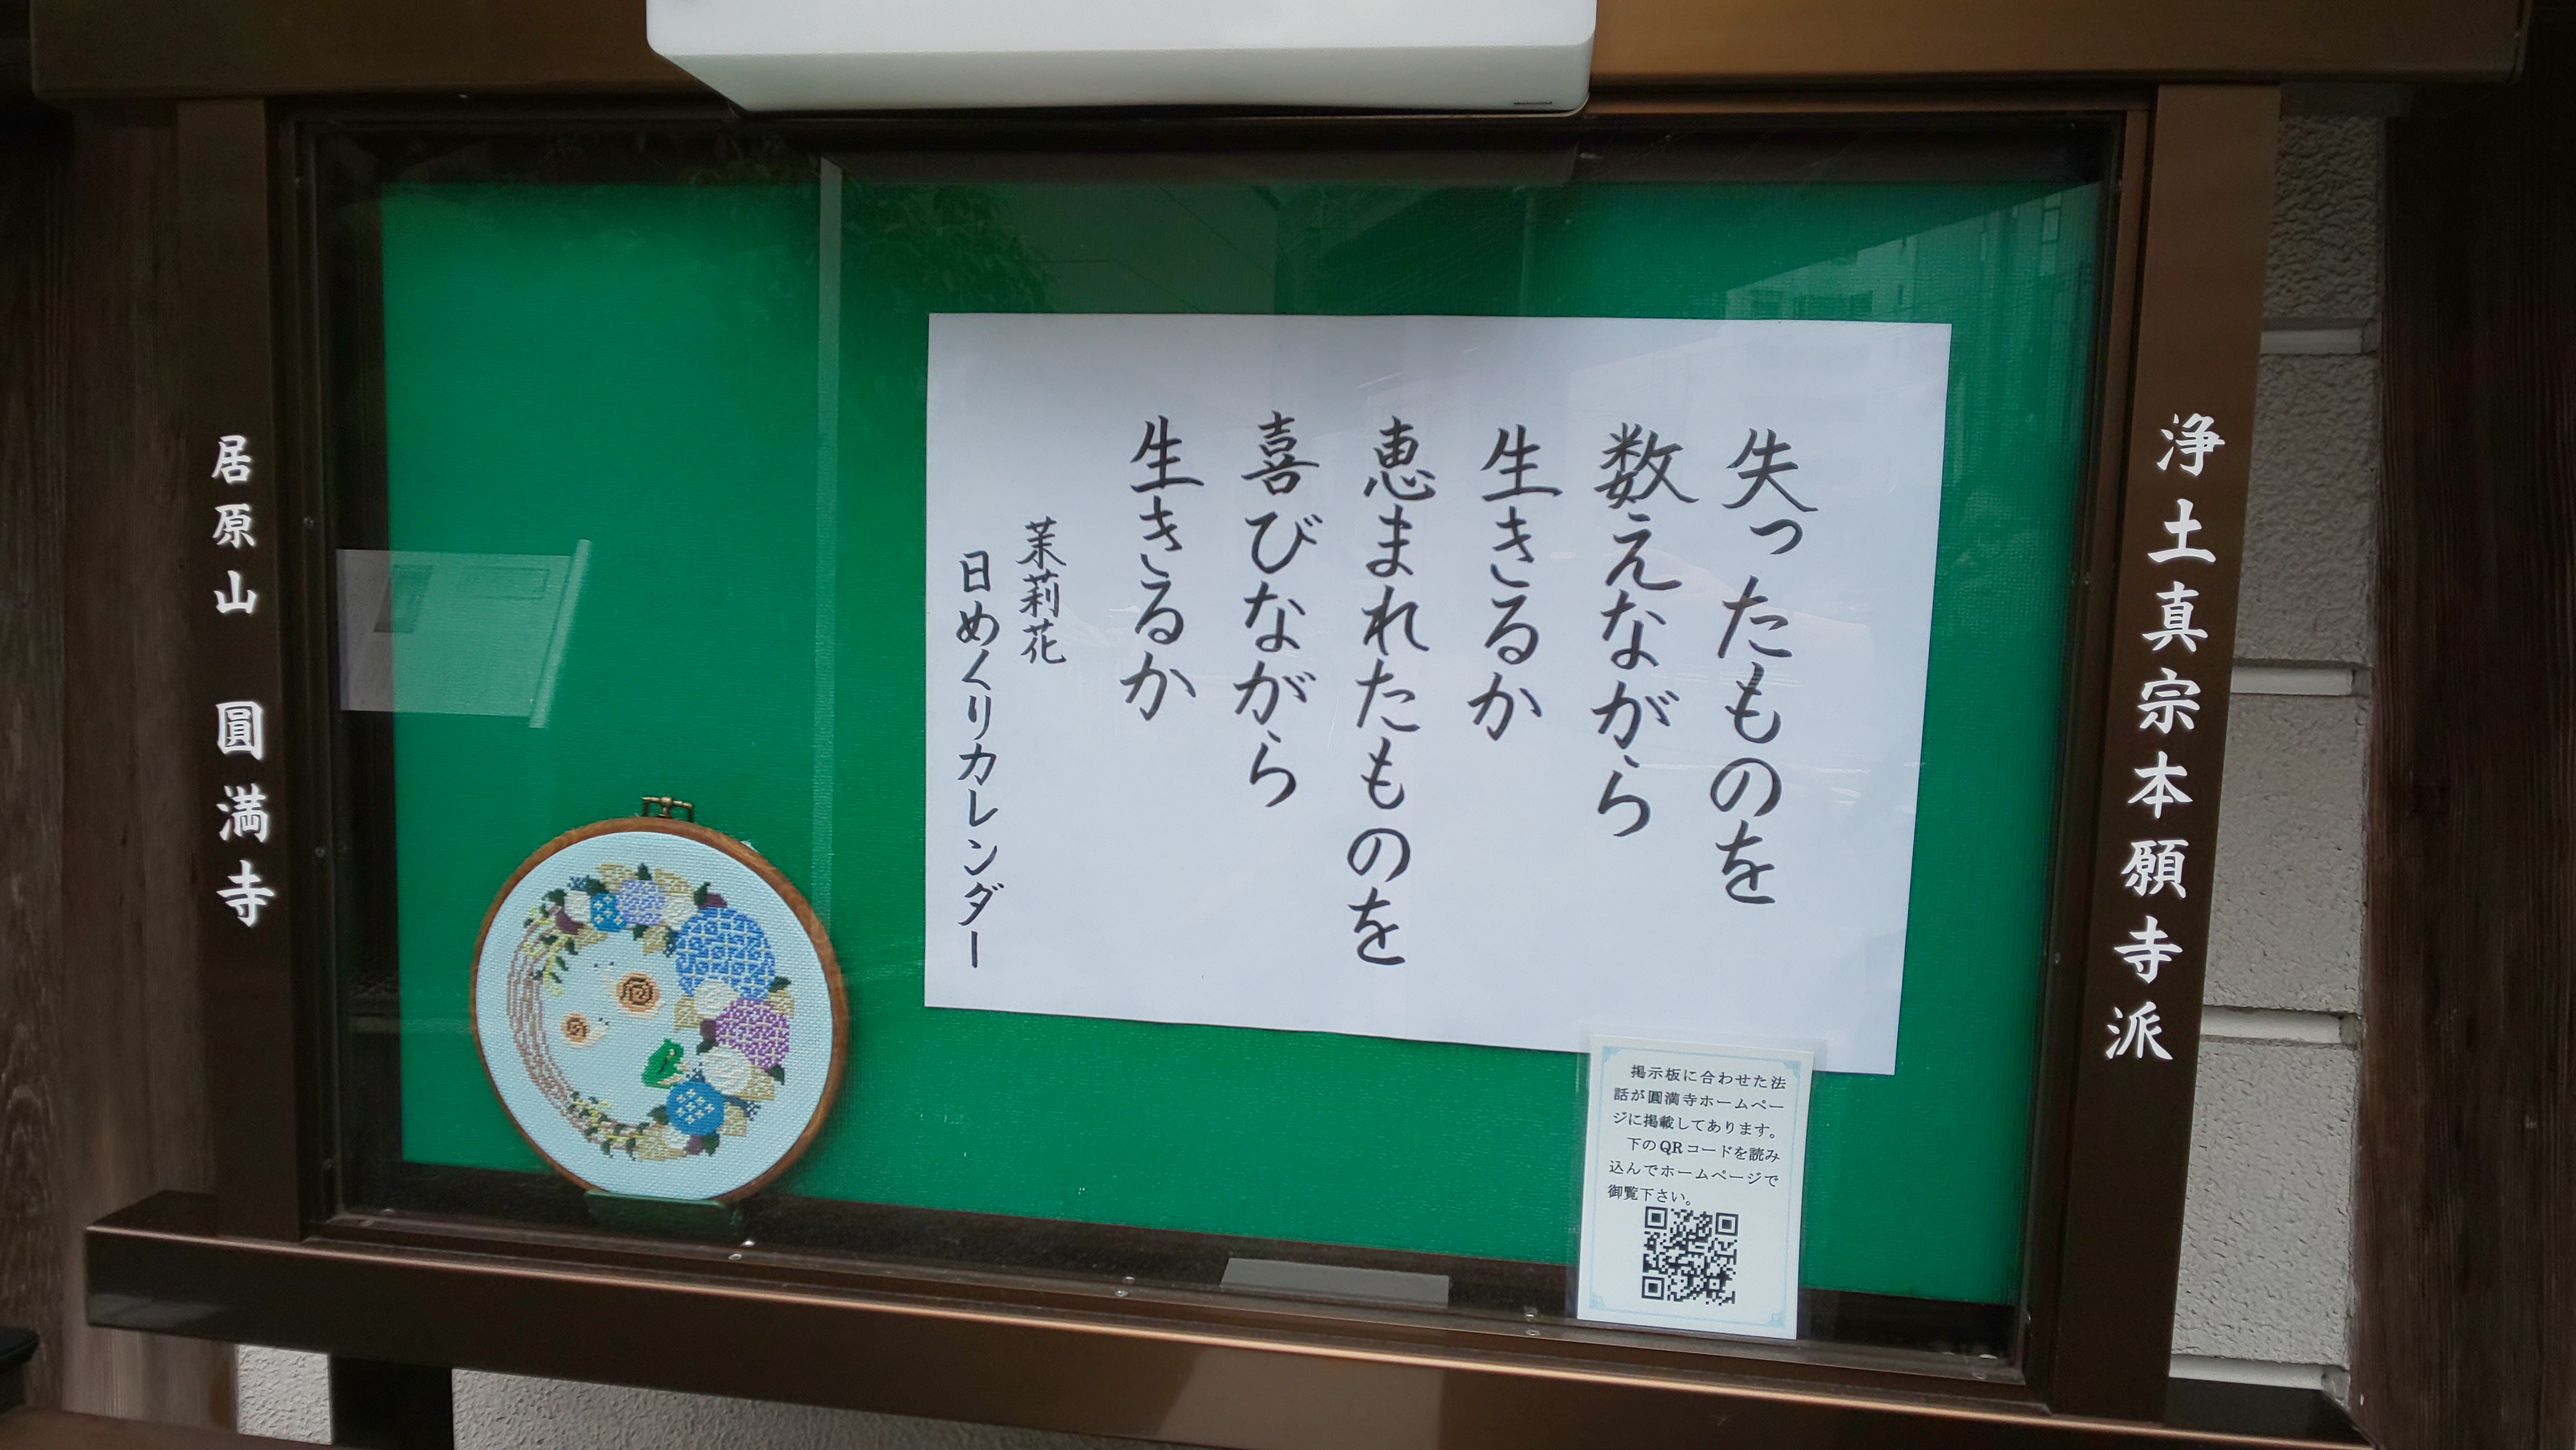 浄土真宗本願寺派
失ったものを
数えながら
生きるか
恵まれたものを
喜びながら
生きるか
茉莉花
日めくりカレンダー
居原山 圓満寺
掲示板に合わせた法
話が圓満寺ホームペー
ジに掲載してあります。
下のQRコードを読み
込んでホームページで
御覧下さい。